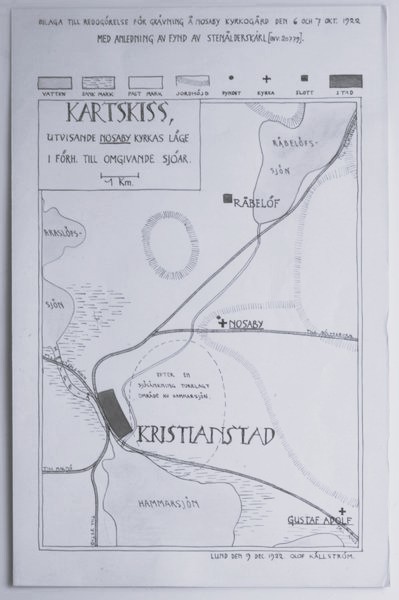 BILAGA TILL REDOGÖRELSE FÖR GRÄVNING Å NOSABY KYRKOGÅRD DEN 6 OCH 7 OKT. 1922
MED ANLEDNING AV FYND AV STENÅLDERSKÄRL [INV: 20779].
VATTEN SANK MARK FAST MARK JORDHÖJD FYNDET KYRKA SLOTT STAD
KARTSKISS,
UTVISANDE NOSABY KYRKAS LÄGE
I FÖRH. TILL OMGIVANDE SJÖAR.
1 Km.
RÅBELÖFS-
SJÖN
RÅBELÖF
ARASLÖFS-
SJÖN
NOSABY
EFTER EN
SJÖSÄNKNING TORRLAGT
OMRÅDE AV HAMMARSJÖN.
KRISTIANSTAD
HAMMARSJÖN
GUSTAF ADOLF
LUND DEN 9 DEC. 1922 OLOF KÄLLSTRÖM.